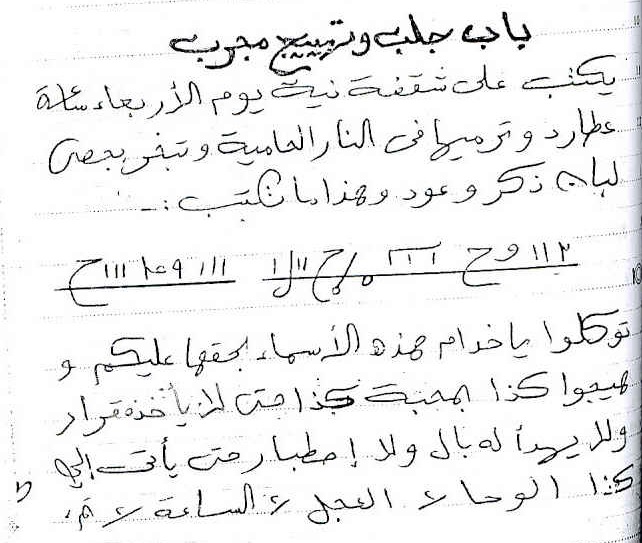 باب جلب وتهييج مجرب
يكتب على شقفة نية يوم الأربعاء ساعة
عطارد وترميها فى النار الحامية وتبخر بحصى
لبان ذكر وعود وهذا ما تكتب :ـ
توكلوا يا خدام هذه الأسماء بحقها عليكم و
هيجوا كذا بمحبة كذا حتى لا يأخذه قرار
ولا يهدأ له بال ولا إصطبار حتى يأتى إلى
كذا الوحا ٢ العجل ٢ الساعة ٢ تم،